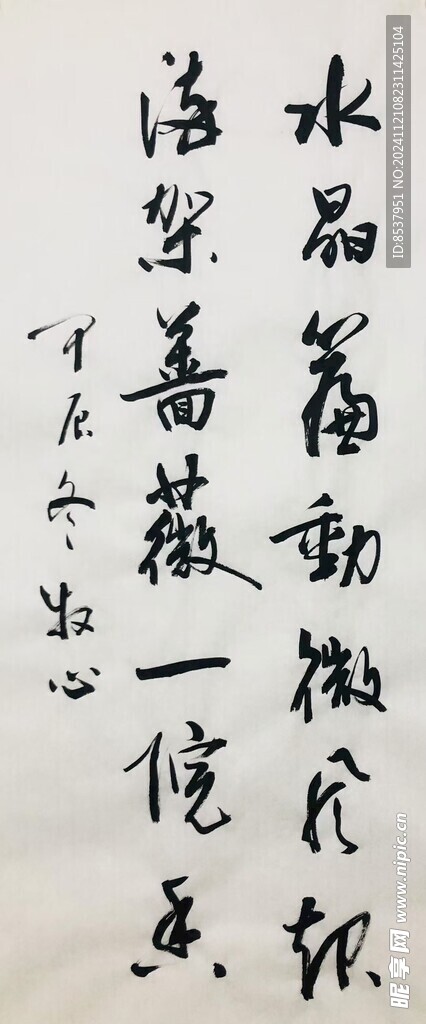 水晶簾動微风起
满架薔薇一院香
甲辰冬牧心
ID:8537951 NO:20241121082311425104
昵享网 www.nipic.cn